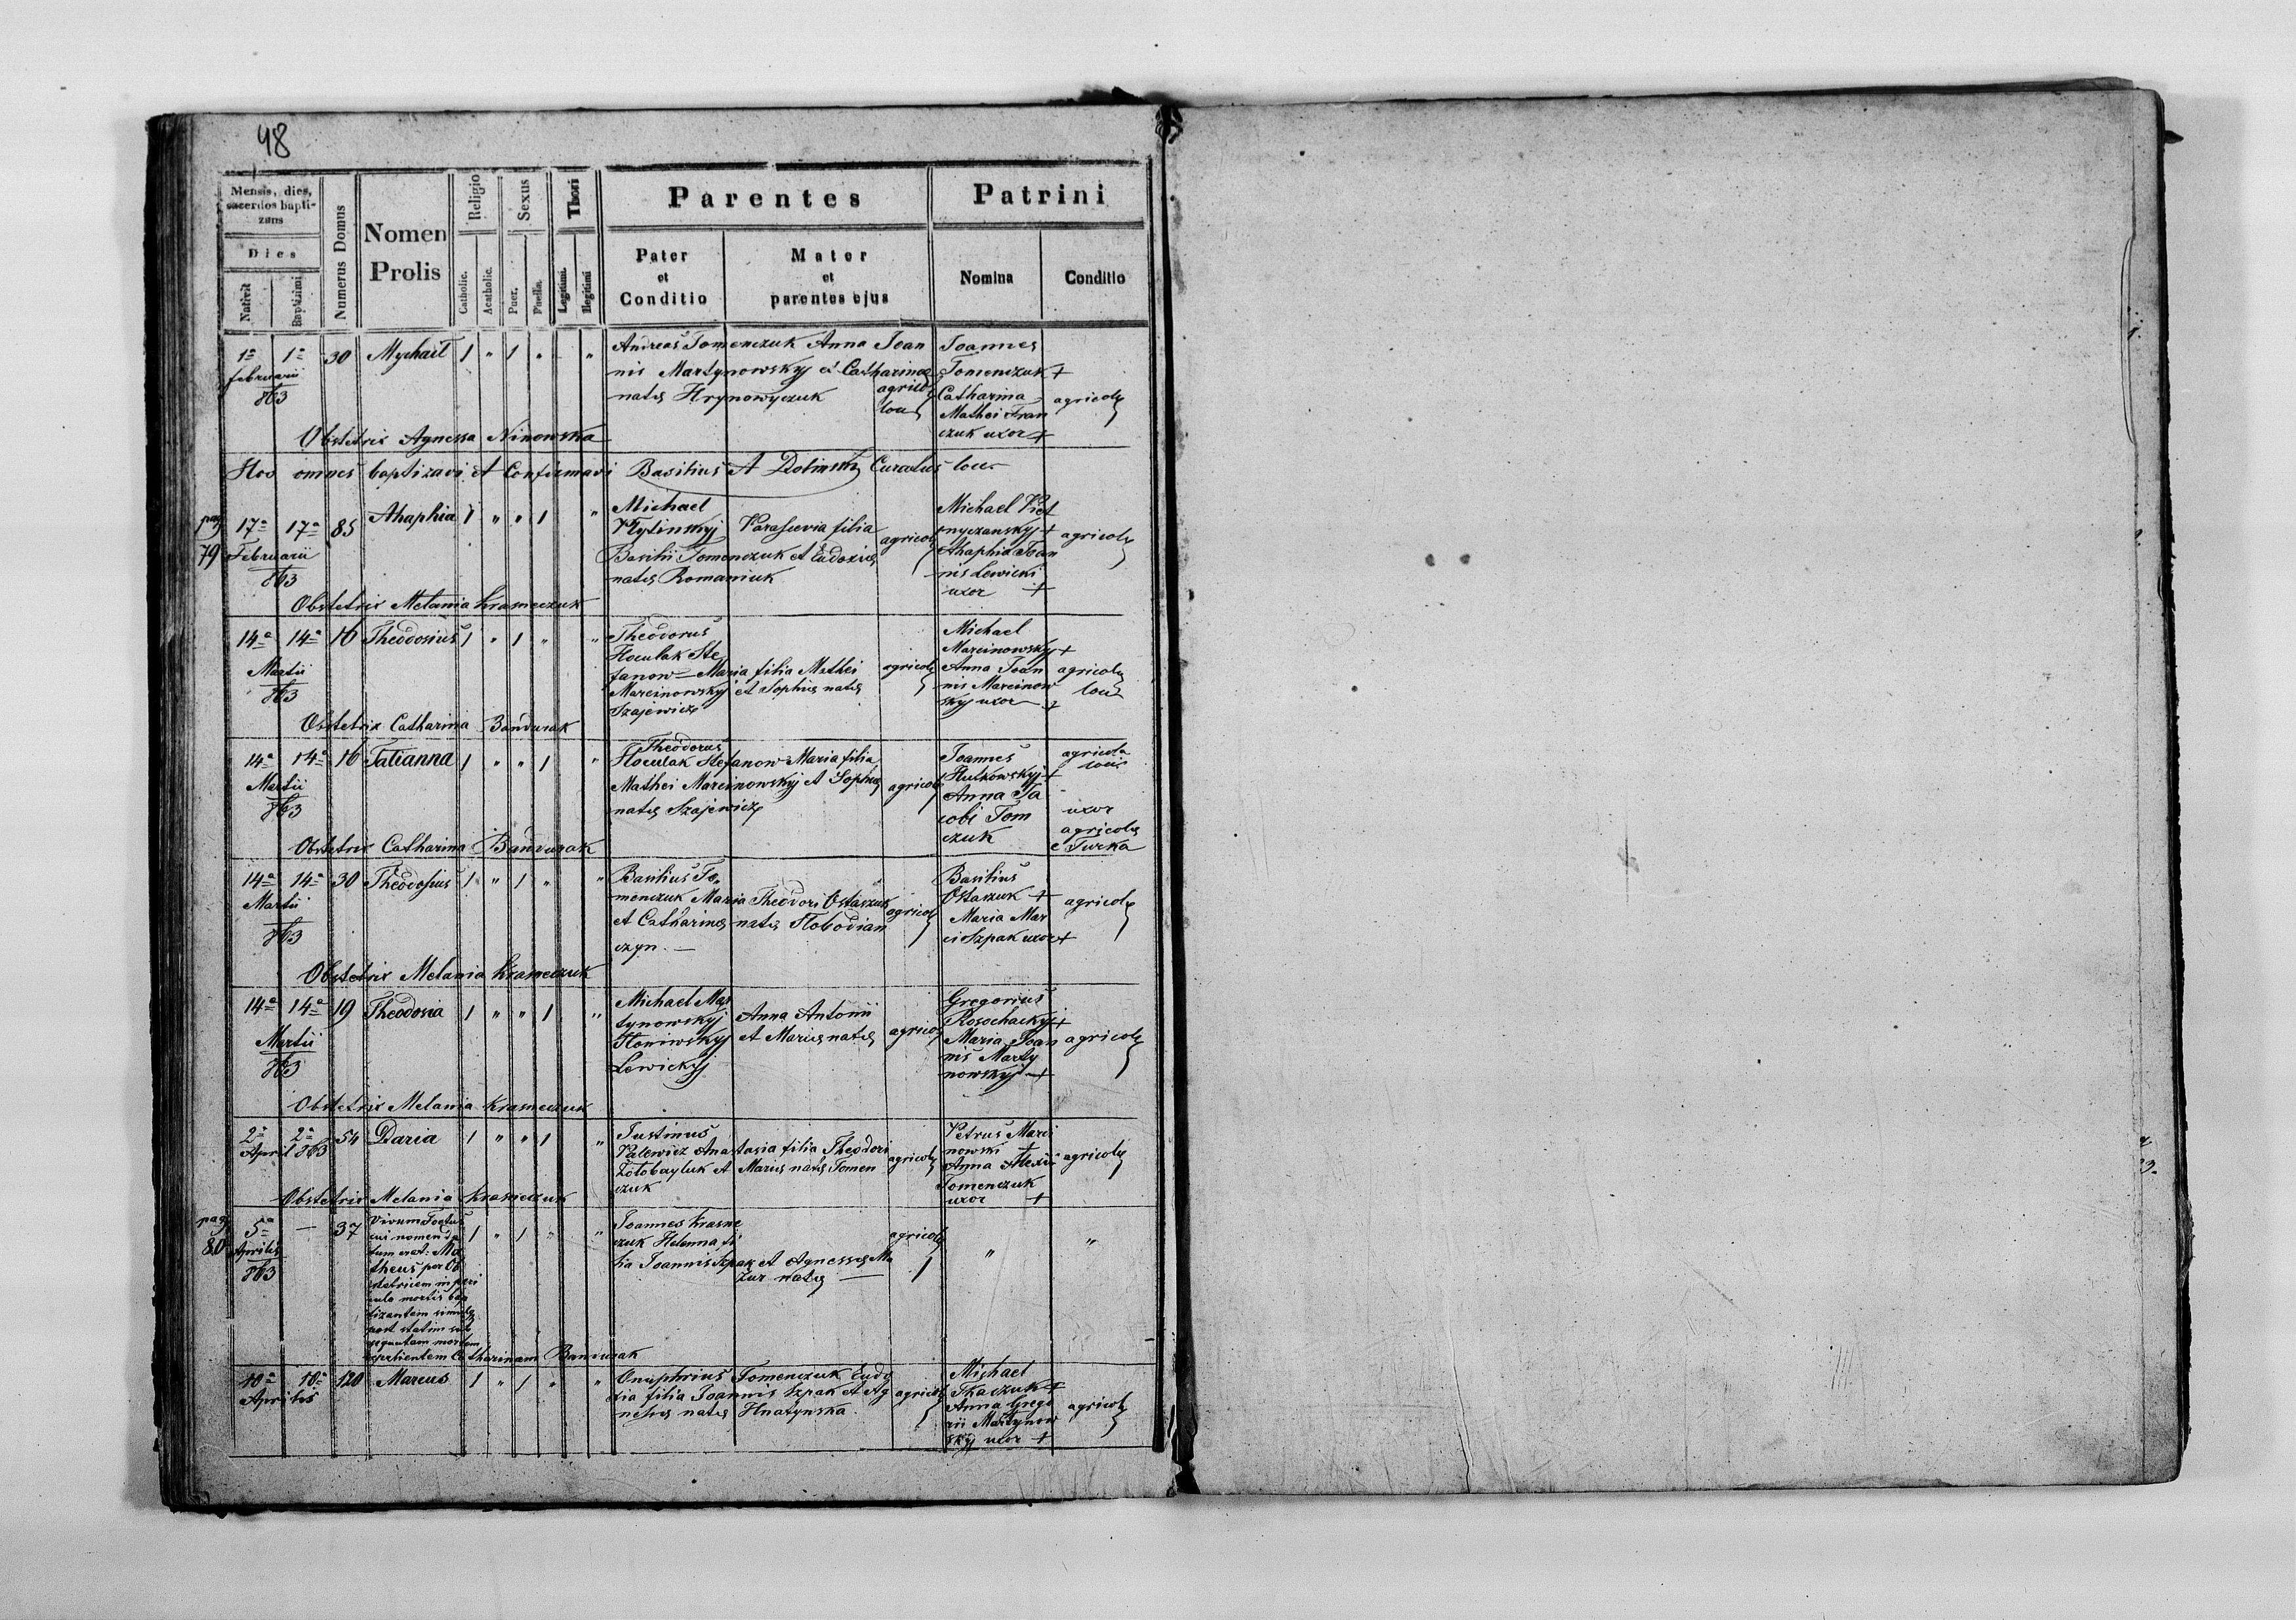 48
Mensis, dies, sacerdos baptizans
Dies
Nativit
Baptismi
Numerus Domus
Nomen Prolis
Religio
Catholic.
Acatholic.
Sexus
Puer.
Puella.
Thori
Legitimi.
Illegitimi
Parentes
Pater et Conditio
Mater et parentes ejus
Patrini
Nomina
Conditio
1a 1a 30 Mychaił 1 " 1 " "
februarii
863
Andreas Tomenczuk Anna Joan
nis Martynowskyj et Catharinae
natae Hrynowyczuk
agricolae
loci
Joannes
Tomenczuk +
Catharina
Mathei Fran
czuk uxor +
agricolae
Obstetrix Agnessa Ninowska
Hos omnes baptizavi et Confirmavi Basilius Curatus loci
pag 79
17a 17a 85 Ahaphia 1 " " 1 "
Februarii
863
Michael
Parascevia filia
Basilii Tomenczuk et Eudoxiae
natae Romaniuk
agricolae
Michael
+
Ahaphia Joan
nis Lewicki
uxor +
agricolae
Obstetrix Melania Krasneczuk
14a 14a 16 Theodosius 1 " 1 " "
Martii
863
Theodorus
Hoculak Ste
fanow Maria filia Mathei
Marcinowskyj et Sophiae natae
Szajewicz
agricolae
Michael
Marcinowskyj +
Anna Joan
nis Marcinow
skyj uxor +
agricolae
loci
Obstetrix Catharina Bandurak
14a 14a 16 Tatianna 1 " " 1 "
Martii
863
Theodorus
Hoculak Stefanow Maria filia
Mathei Marcinowskyj et Sophiae
natae Szajewicz
agricolae
Joannes
Hutkowskyj +
Anna Ja
cobi Tom
czuk
agricola
loci
uxor
agricolae
e Turka
Obstetrix Catharina Bandurak
14a 14a 30 Theodosius 1 " 1 " "
Martii
863
Basilius To
menczuk Maria Theodori Ostaszuk
et Catharinae natae Slobodian
czyn. —
agricolae
Basilius
Ostaszuk +
Maria Mar
ci Szpak uxor +
agricolae
Obstetrix Melania Krasneczuk
14a 14a 19 Theodosia 1 " " 1 "
Martii
863
Michael Mar
tynowskyj
Anna Antonii
et Mariae natae
Lewickyj
agricolae
Gregorius
Rosochackyj +
Maria Joan
nis Marty
nowskyj +
agricolae
Obstetrix Melania Krasneczuk
2a 2a 54 Daria 1 " " 1 "
April 863
Justinus
Palewicz Anastasia filia Theodori
et Mariae natae Tomen
czuk
agricolae
Petrus Marci
nowski +
Anna Alexii
Tomenczuk
uxor +
agricolae
Obstetrix Melania Krasneczuk
pag 80
5a — 37
Aprilis
863
Vivum Foetus
cui nomen da
tum erat: Ma
theus per Ob
stetricem in peri
culo mortis bap
tizantem
post statim sub
sequentam mortem
Catharinam Bandurak
1 " 1 " "
Joannes Krasne
czuk Helenna fi
lia Joannis Szpak et Agnessae Ma
zur natae —
agricolae
"
"
10a 10a 120 Marcus 1 " 1 " "
Aprilis
Onuphrius Tomenczuk Eudo
xia filia Joannis Szpak et Ag
nesiae natae Hnatynska
agricolae
Michael
Tkaczuk +
Anna Grego
rii Martynow
skyj uxor +
agricolae